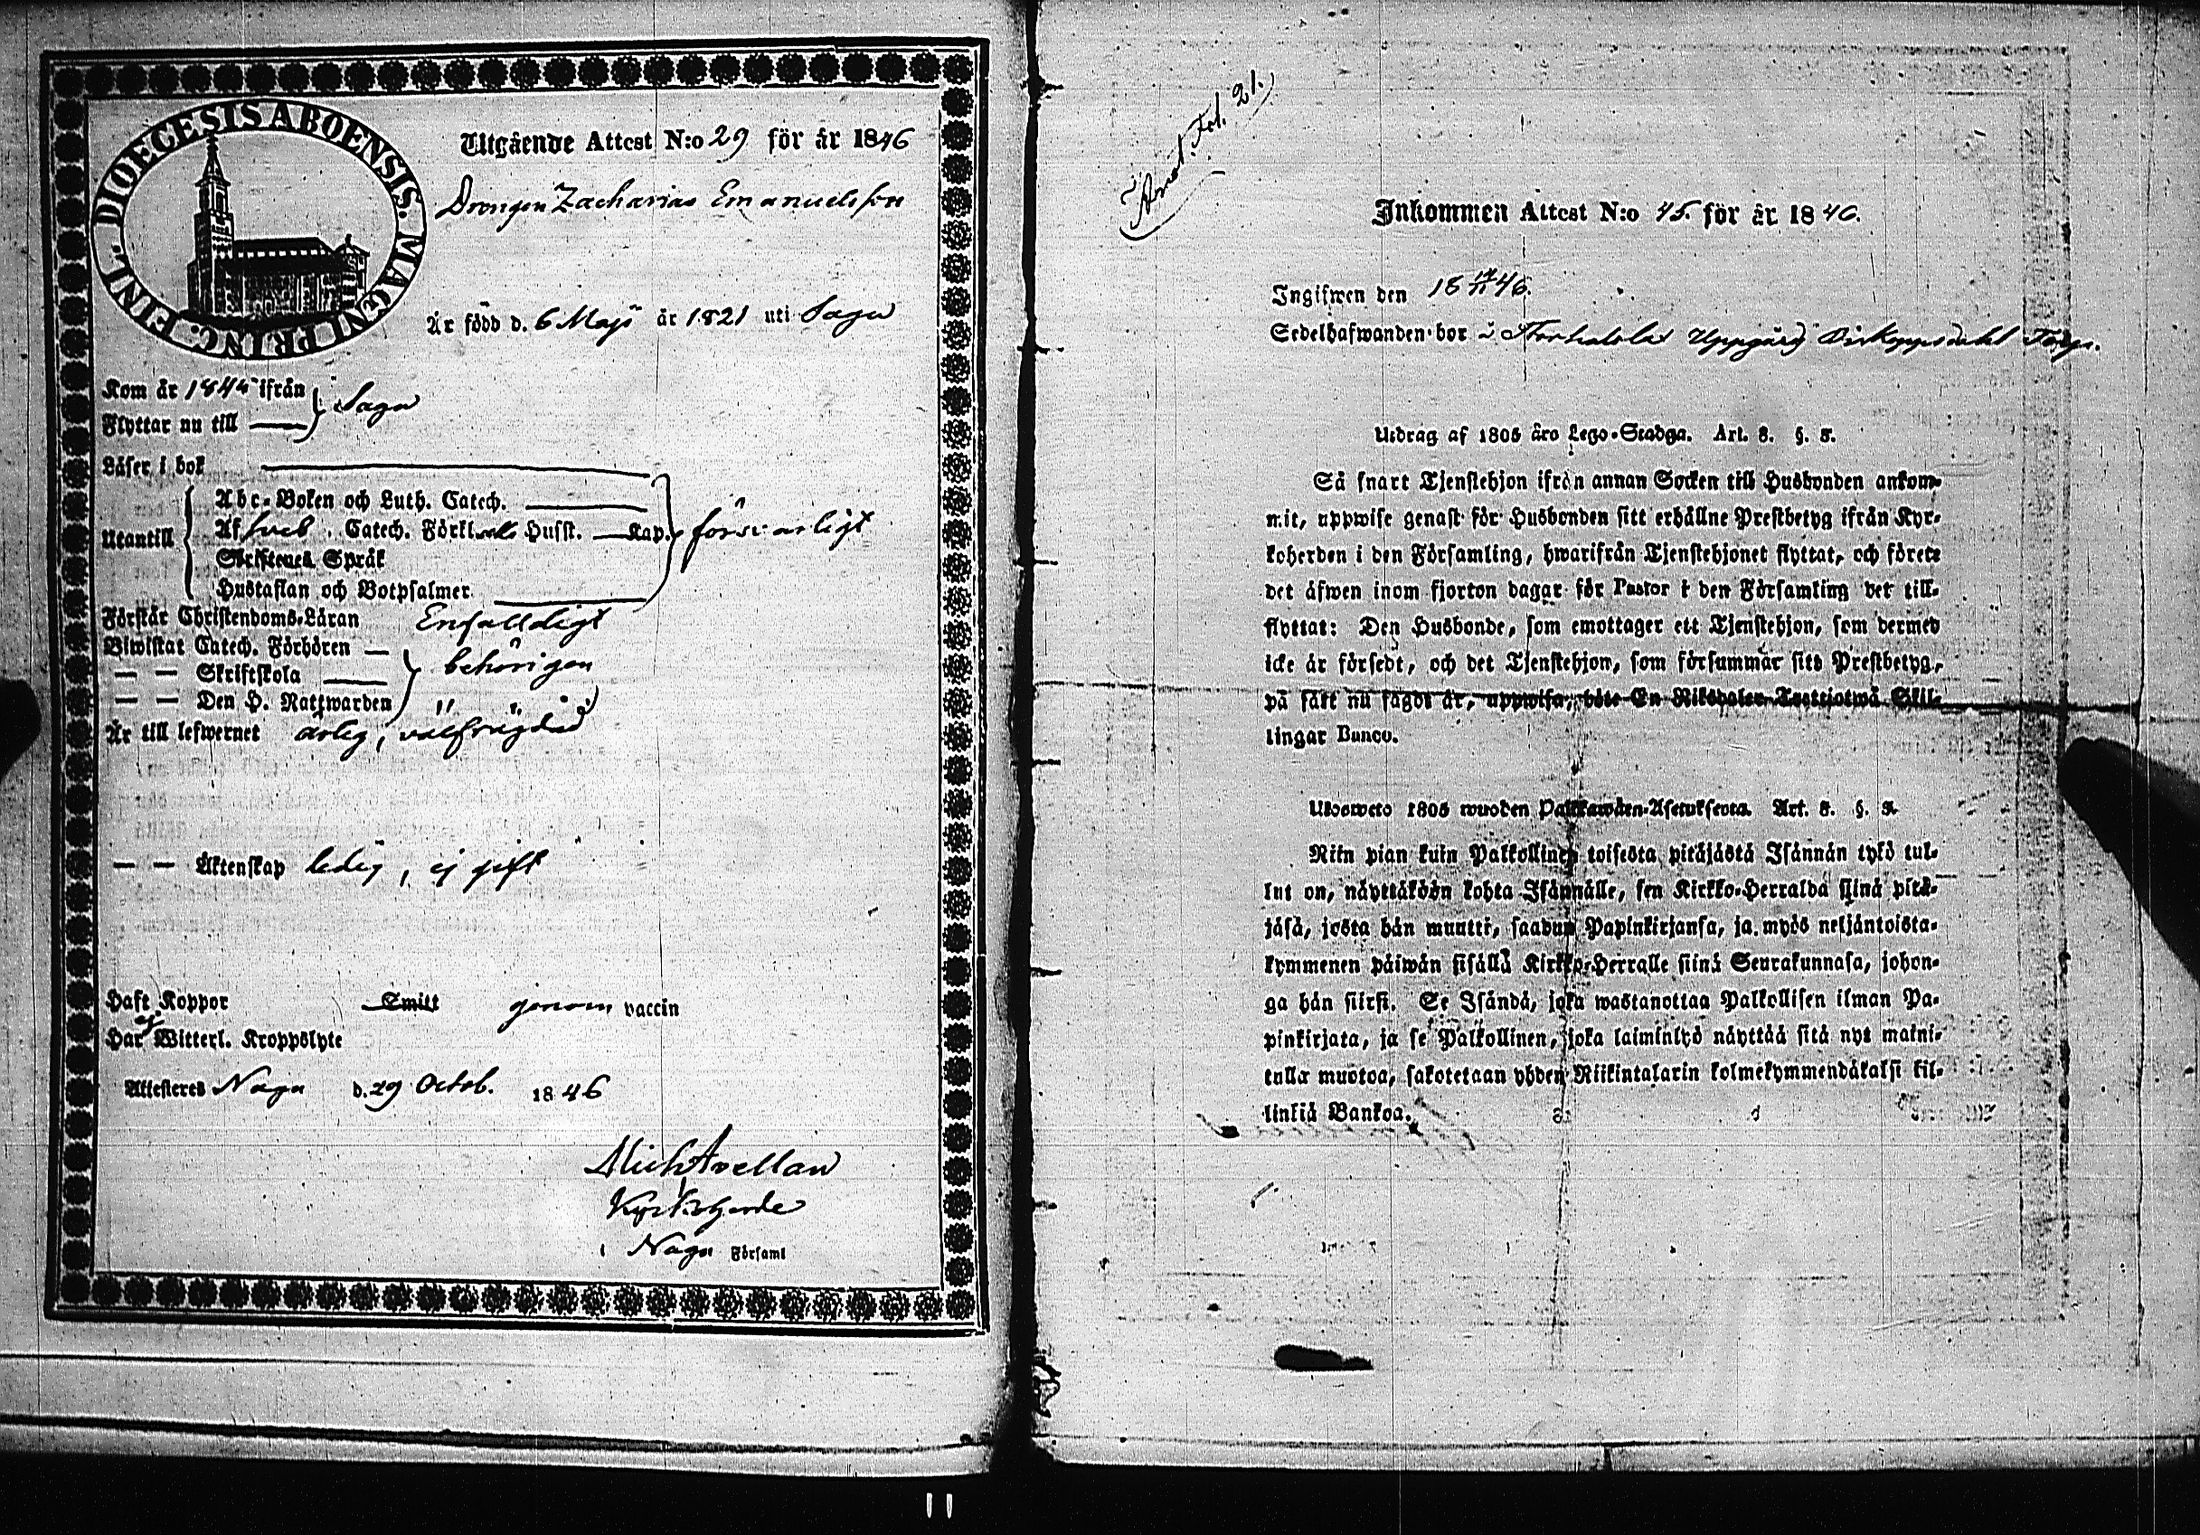 FINL. DIOECESIS ABOENSIS. MAGNI PRINC.
Utgående Attest N:o 29 för år 1846
Drengen Zacharias Emanuelsson
Är född d. 6 Maji år 1821 uti Sagu
Kom år 1844 ifrån
Flyttar nu till } Sagu
Läser i bok
Utantill
Abc-Boken och Luth. Catech.
Af Sveb. Catech. Förkl. Husst. Kap. försvarligt
Skriftenes Språk
Hustaflan och Botpsalmer
Förstår Christendoms-Läran Enfalldigt
Biwistat Catech. Förhören
— — Skriftskola behörigen
— — Den H. Nattwarden
Är till lefwernet ärlig, välfrägdad
— — Äktenskap ledig, ej gift
Haft Koppor Smitt genom vaccin
Har ej Witterl. Kroppslyte
Attesteras Nagu d. 29 Octob. 1846
Mich Avellan
Kyrkoherde
i Nagu Församl
Fol. 21.
Inkommen Attest N:o 45. för år 1846.
Ingifwen den 18 46.
Sedelhafwanden bor i Uppgård
Utdrag af 1805 års Lego-Stadga. Art. 8. §. 5.
Så snart Tjenstehjon ifrån annan Socken till Husbonden ankom-
mit, uppwise genast för Husbonden sitt erhållne Prestbetyg ifrån Kyr-
koherden i den Församling, hwarifrån Tjenstehjonet flyttat, och förete
det äfwen inom fjorton dagar för Pastor i den Församling det till-
flyttat: Den Husbonde, som emottager ett Tjenstehjon, som dermed
icke är försedt, och det Tjenstehjon, som försummar sitt Prestbetyg,
på sätt nu sagdt är, uppwisa, böte En Riksdaler Trettiotwå Skil-
lingar Banco.
Ulosweto 1805 wuoden Palkkawäen-Asetuksesta. Art. 8. §. 5.
Niin pian kuin Palkollinen toisesta pitäjästä Isännän tykö tul-
lut on, näyttäköön kohta Isännälle, sen Kirkko-Herralda siinä pitä-
jäsä, josta hän muutti, saadun Papinkirjansa, ja myös neljäntoista-
kymmenen päiwän sisällä Kirkko-Herralle siinä Seurakunnasa, johon-
ga hän siirsi. Se Isändä, joka wastanottaa Palkollisen ilman Pa-
pinkirjata, ja se Palkollinen, joka laiminlyö näyttää sitä nyt maini-
tulla muotoa, sakotetaan yhden Riikintalarin kolmekymmendäkaksi kil-
linkiä Bankoa.